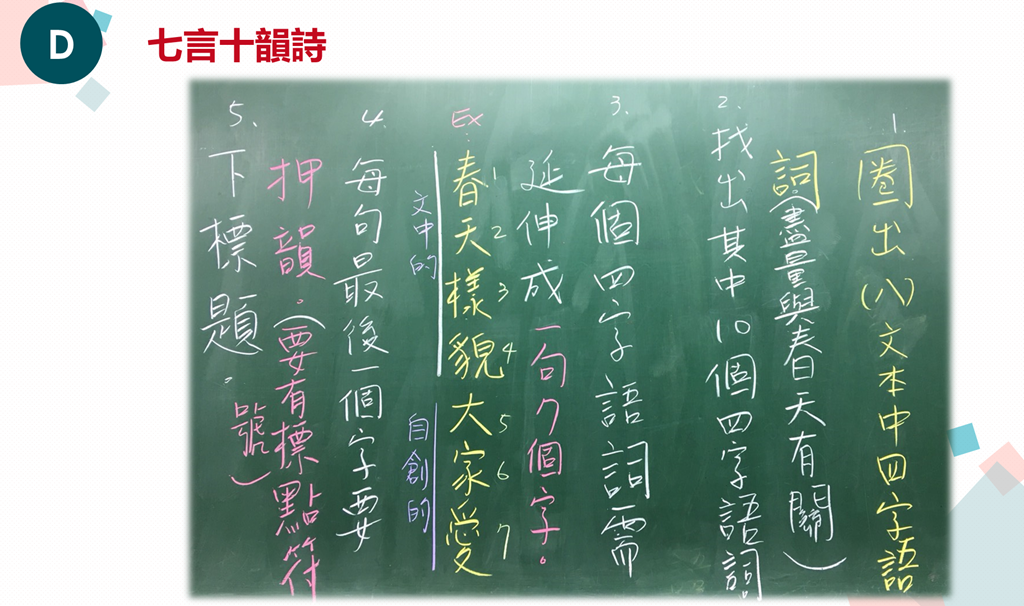 D
七言十韻詩
1. 圈出(八)文本中四字語
詞(盡量與春天有關)
2. 找出其中10個四字語詞
3. 每個四字語詞需
延伸成一句7個字。
Ex: 春天樣貌大家愛
1 2 3 4 5 6 7
文中的
自創的
4. 每句最後一個字要
押韻。(要有標點符
號)
5. 下標題。